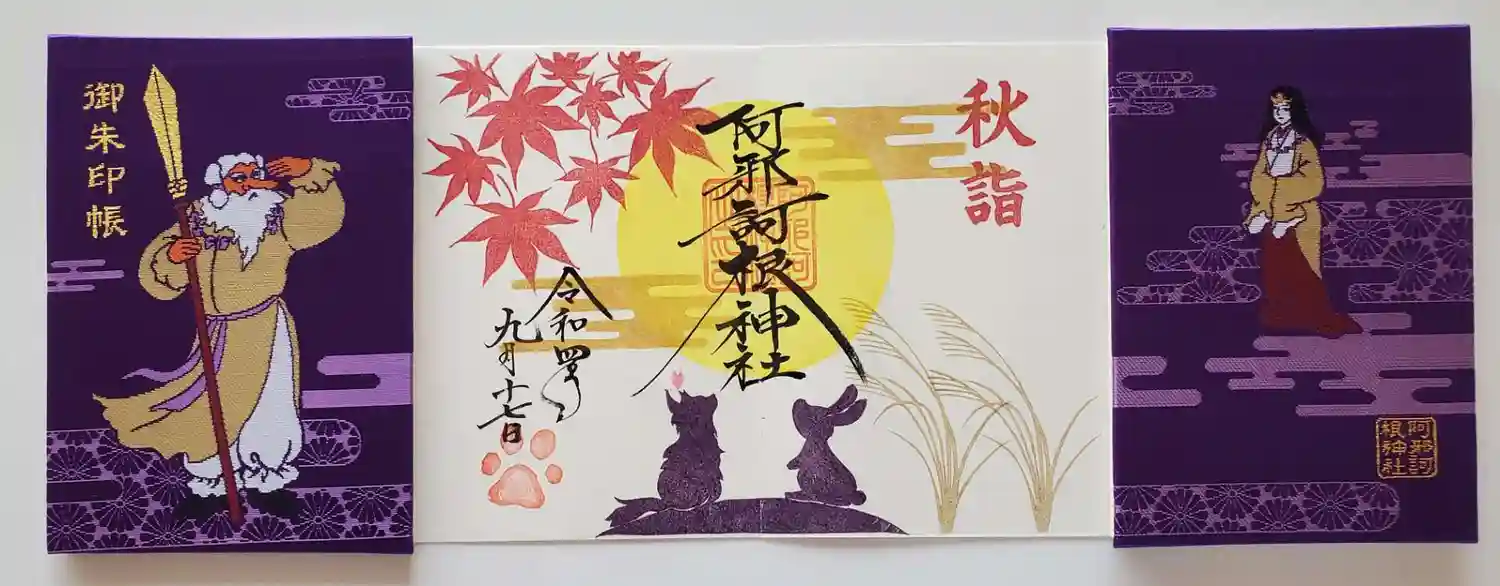 御朱印帳
秋詣
阿邪訶根神社
令和四年
九月十七日
阿邪訶
根神社